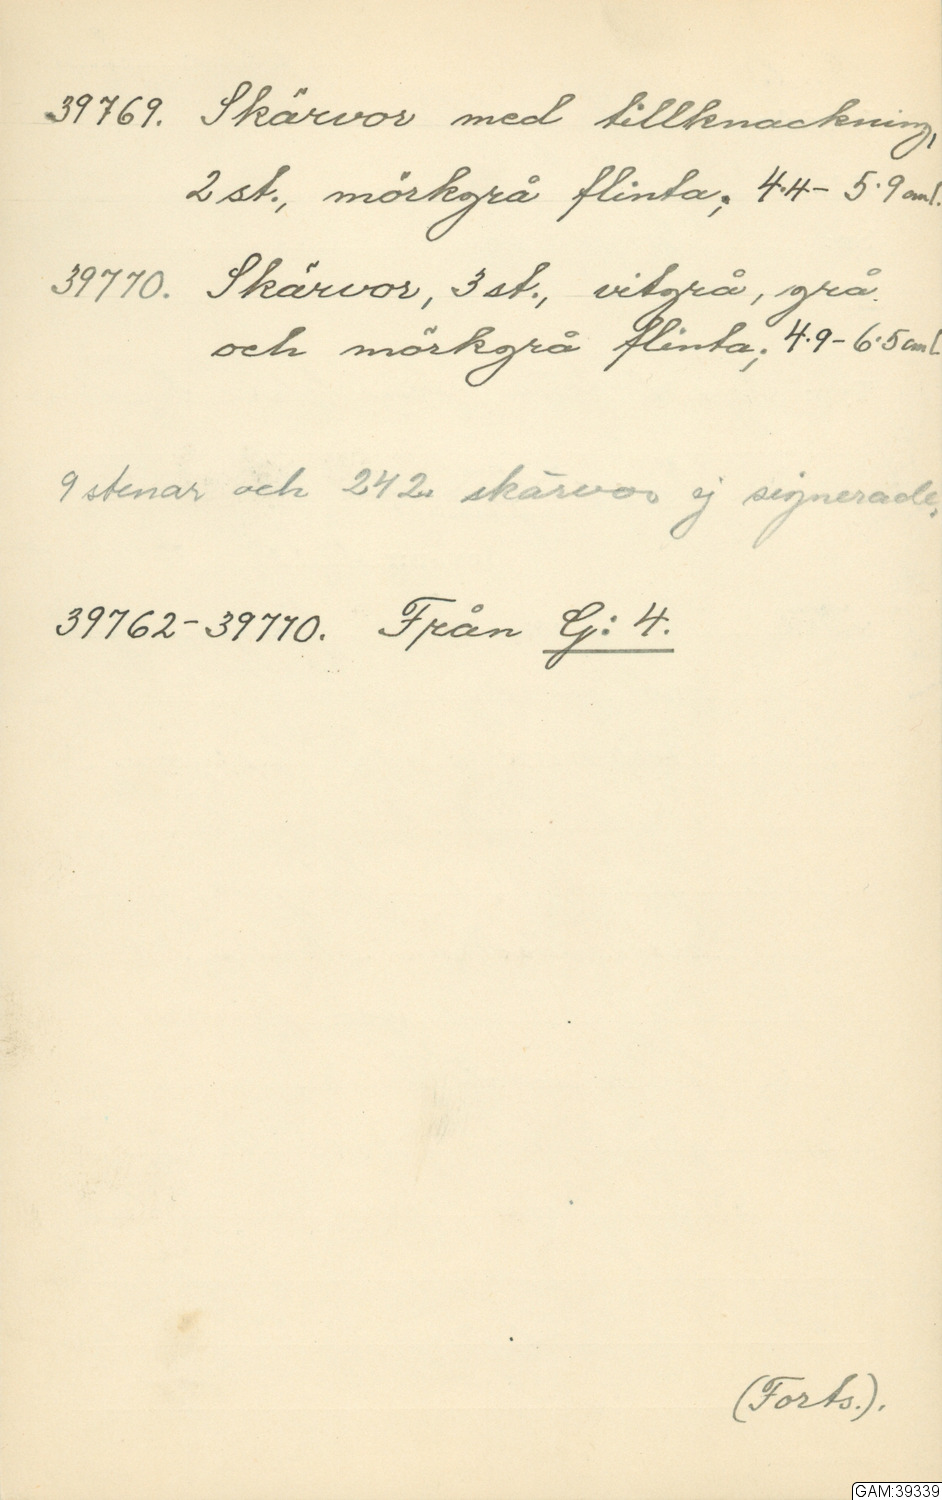 39769. Skärvor med tillknackning,
2 st., mörkgrå flinta; 4.4 - 5.9 cm l.
39770. Skärvor, 3 st., vitgrå, grå
och mörkgrå flinta; 4.9 - 6.5 cm l.
9 stenar och 242 skärvor ej signerade.
39762 - 39770. Från G: 4.
(Forts.).
GAM:39339